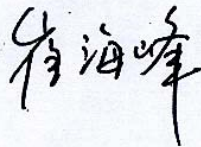 崔海峰